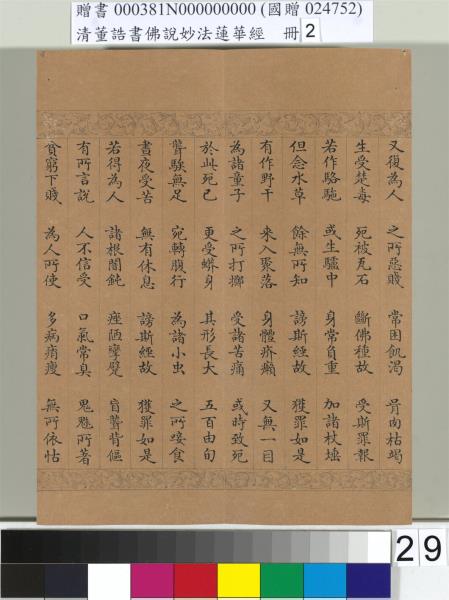 贈書 000381N000000000 (國贈 024752)
清董誥書佛說妙法蓮華經 冊 2
又復為人 之所惡賤 常困飢渴 骨肉枯竭
生受楚毒 死被瓦石 斷佛種故 受斯罪報
若作駱駞 或生驢中 身常負重 加諸杖捶
但念水草 餘無所知 謗斯經故 獲罪如是
有作野干 來入聚落 身體疥癩 又無一目
為諸童子 之所打擲 受諸苦痛 或時致死
於此死已 更受蟒身 其形長大 五百由旬
聾騃無足 宛轉腹行 為諸小虫 之所唼食
晝夜受苦 無有休息 謗斯經故 獲罪如是
若得為人 諸根闇鈍 痤陋攣躄 盲聾背傴
有所言說 人不信受 口氣常臭 鬼魅所著
貧窮下賤 為人所使 多病痟瘦 無所依怙
29